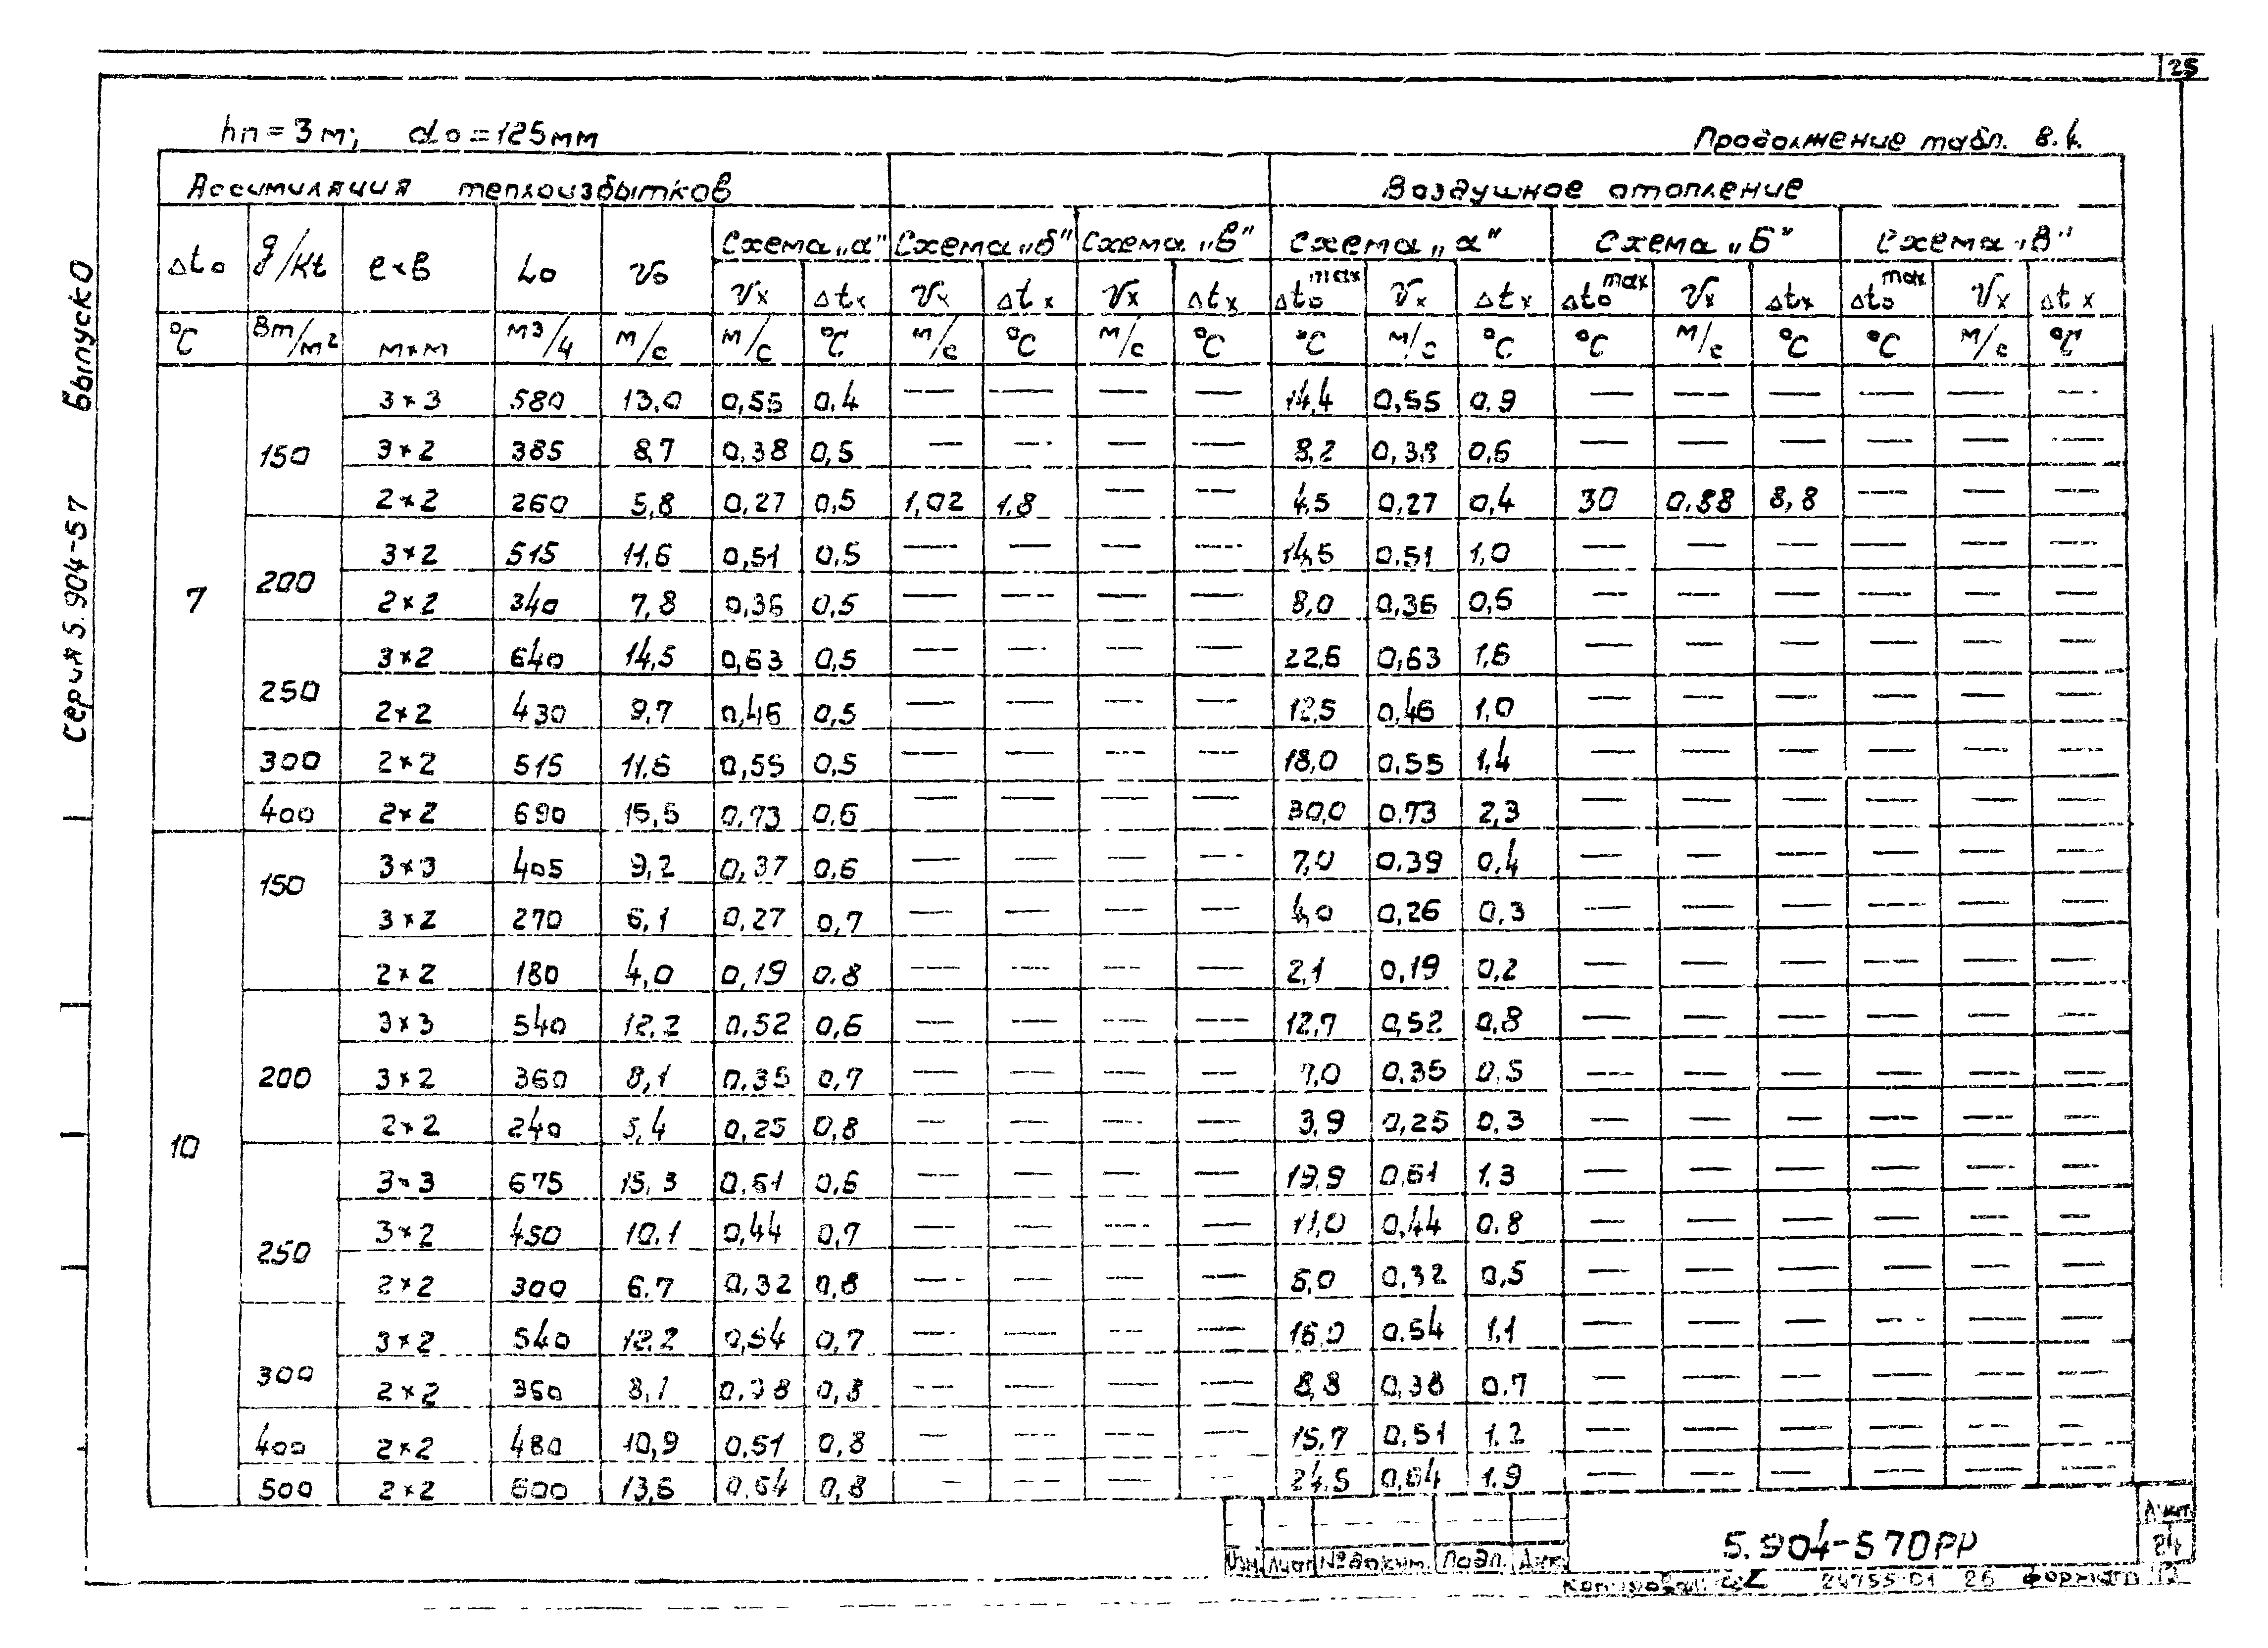 25
hп = 3 м; do = 125 мм
Продолжение табл. 8.4.
Ассимиляция теплоизбытков Воздушное отопление
Δto g/Kt l×в Lo Vo Схема „а" Схема „б" Схема „в" Схема „а" Схема „Б" Схема „В"
Vx Δtx Vx Δtx Vx Δtx Δto max Vx Δtx Δto max Vx Δtx Δto max Vx Δtx
°C Вт/м² м×м м³/ч м/с м/с °C м/с °C м/с °C °C м/с °C °C м/с °C °C м/с °C
7 150 3×3 580 13,0 0,55 0,4 — — — — 14,4 0,55 0,9 — — — — — —
3×2 385 8,7 0,38 0,5 — — — — 8,2 0,38 0,6 — — — — — —
2×2 260 5,8 0,27 0,5 1,02 1,8 — — 4,5 0,27 0,4 30 0,88 8,8 — — —
200 3×2 515 11,6 0,51 0,5 — — — — 14,5 0,51 1,0 — — — — — —
2×2 340 7,8 0,36 0,5 — — — — 8,0 0,36 0,6 — — — — — —
250 3×2 640 14,5 0,63 0,5 — — — — 22,6 0,63 1,6 — — — — — —
2×2 430 9,7 0,46 0,5 — — — — 12,5 0,46 1,0 — — — — — —
300 2×2 515 11,6 0,55 0,5 — — — — 18,0 0,55 1,4 — — — — — —
400 2×2 690 15,5 0,73 0,6 — — — — 30,0 0,73 2,3 — — — — — —
10 150 3×3 405 9,2 0,37 0,6 — — — — 7,0 0,39 0,4 — — — — — —
3×2 270 6,1 0,27 0,7 — — — — 4,0 0,26 0,3 — — — — — —
2×2 180 4,0 0,19 0,8 — — — — 2,1 0,19 0,2 — — — — — —
200 3×3 540 12,2 0,52 0,6 — — — — 12,7 0,52 0,8 — — — — — —
3×2 360 8,1 0,35 0,7 — — — — 7,0 0,35 0,5 — — — — — —
2×2 240 5,4 0,25 0,8 — — — — 3,9 0,25 0,3 — — — — — —
250 3×3 675 15,3 0,61 0,6 — — — — 19,9 0,61 1,3 — — — — — —
3×2 450 10,1 0,44 0,7 — — — — 11,0 0,44 0,8 — — — — — —
2×2 300 6,7 0,32 0,8 — — — — 6,0 0,32 0,5 — — — — — —
300 3×2 540 12,2 0,54 0,7 — — — — 16,0 0,54 1,1 — — — — — —
2×2 360 8,1 0,38 0,8 — — — — 8,8 0,38 0,7 — — — — — —
400 2×2 480 10,9 0,51 0,8 — — — — 15,7 0,51 1,2 — — — — — —
500 2×2 600 13,6 0,64 0,8 — — — — 24,5 0,64 1,9 — — — — — —
Серия 5.904-57 Выпуск 0
Изм. Лист № докум. Подп. Дат.
5.904-57 0 РР
Лист
24
Копировал 24755-01 26 Формат 12